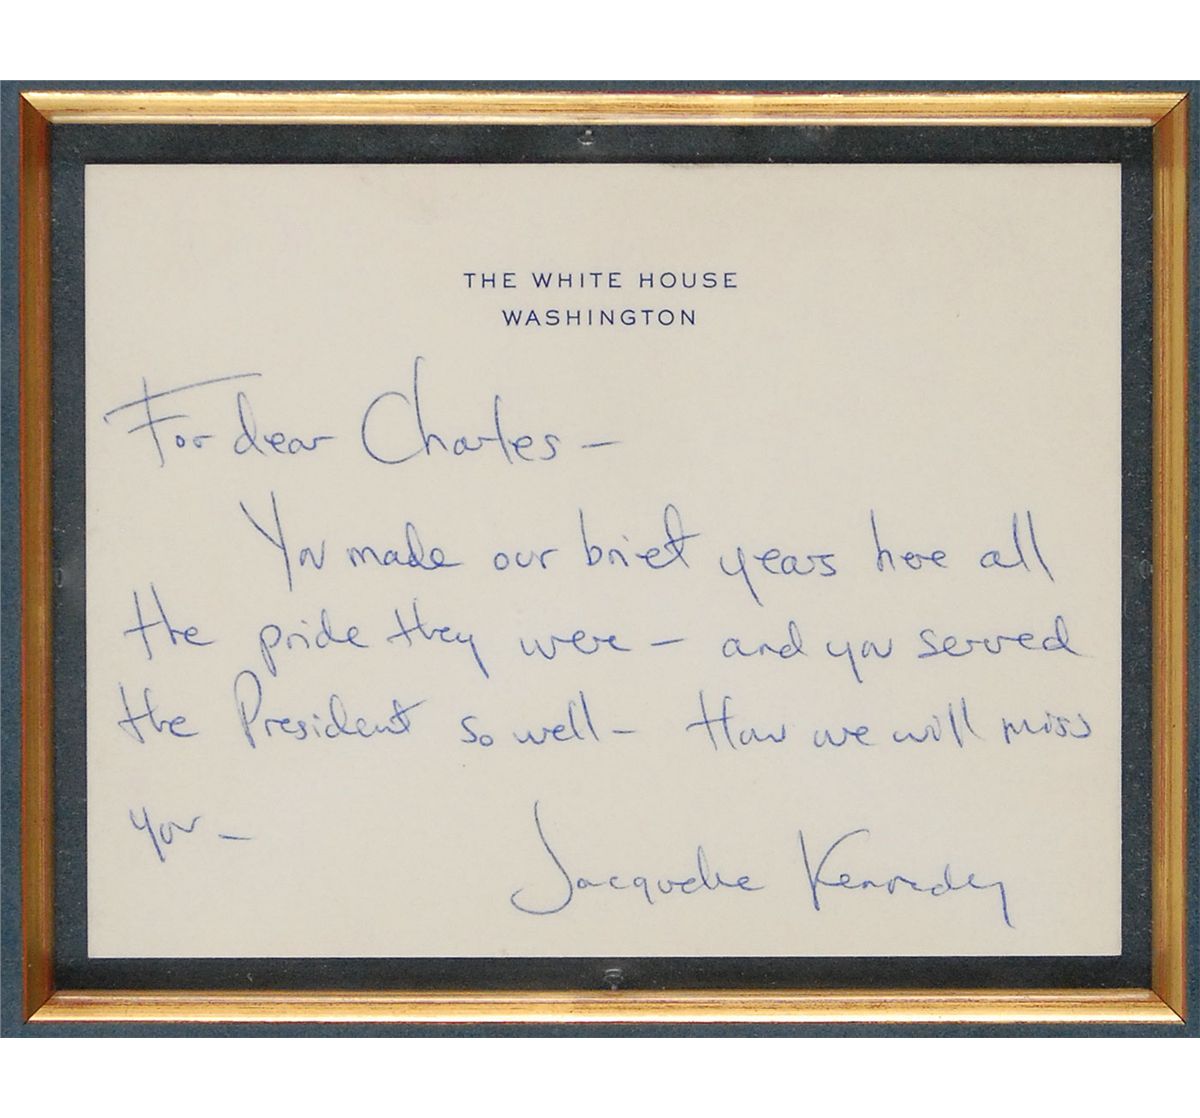 THE WHITE HOUSE
WASHINGTON
For dear Charles —
You made our brief years here all
the pride they were — and you served
the President so well — How we will miss
you —
Jacqueline Kennedy